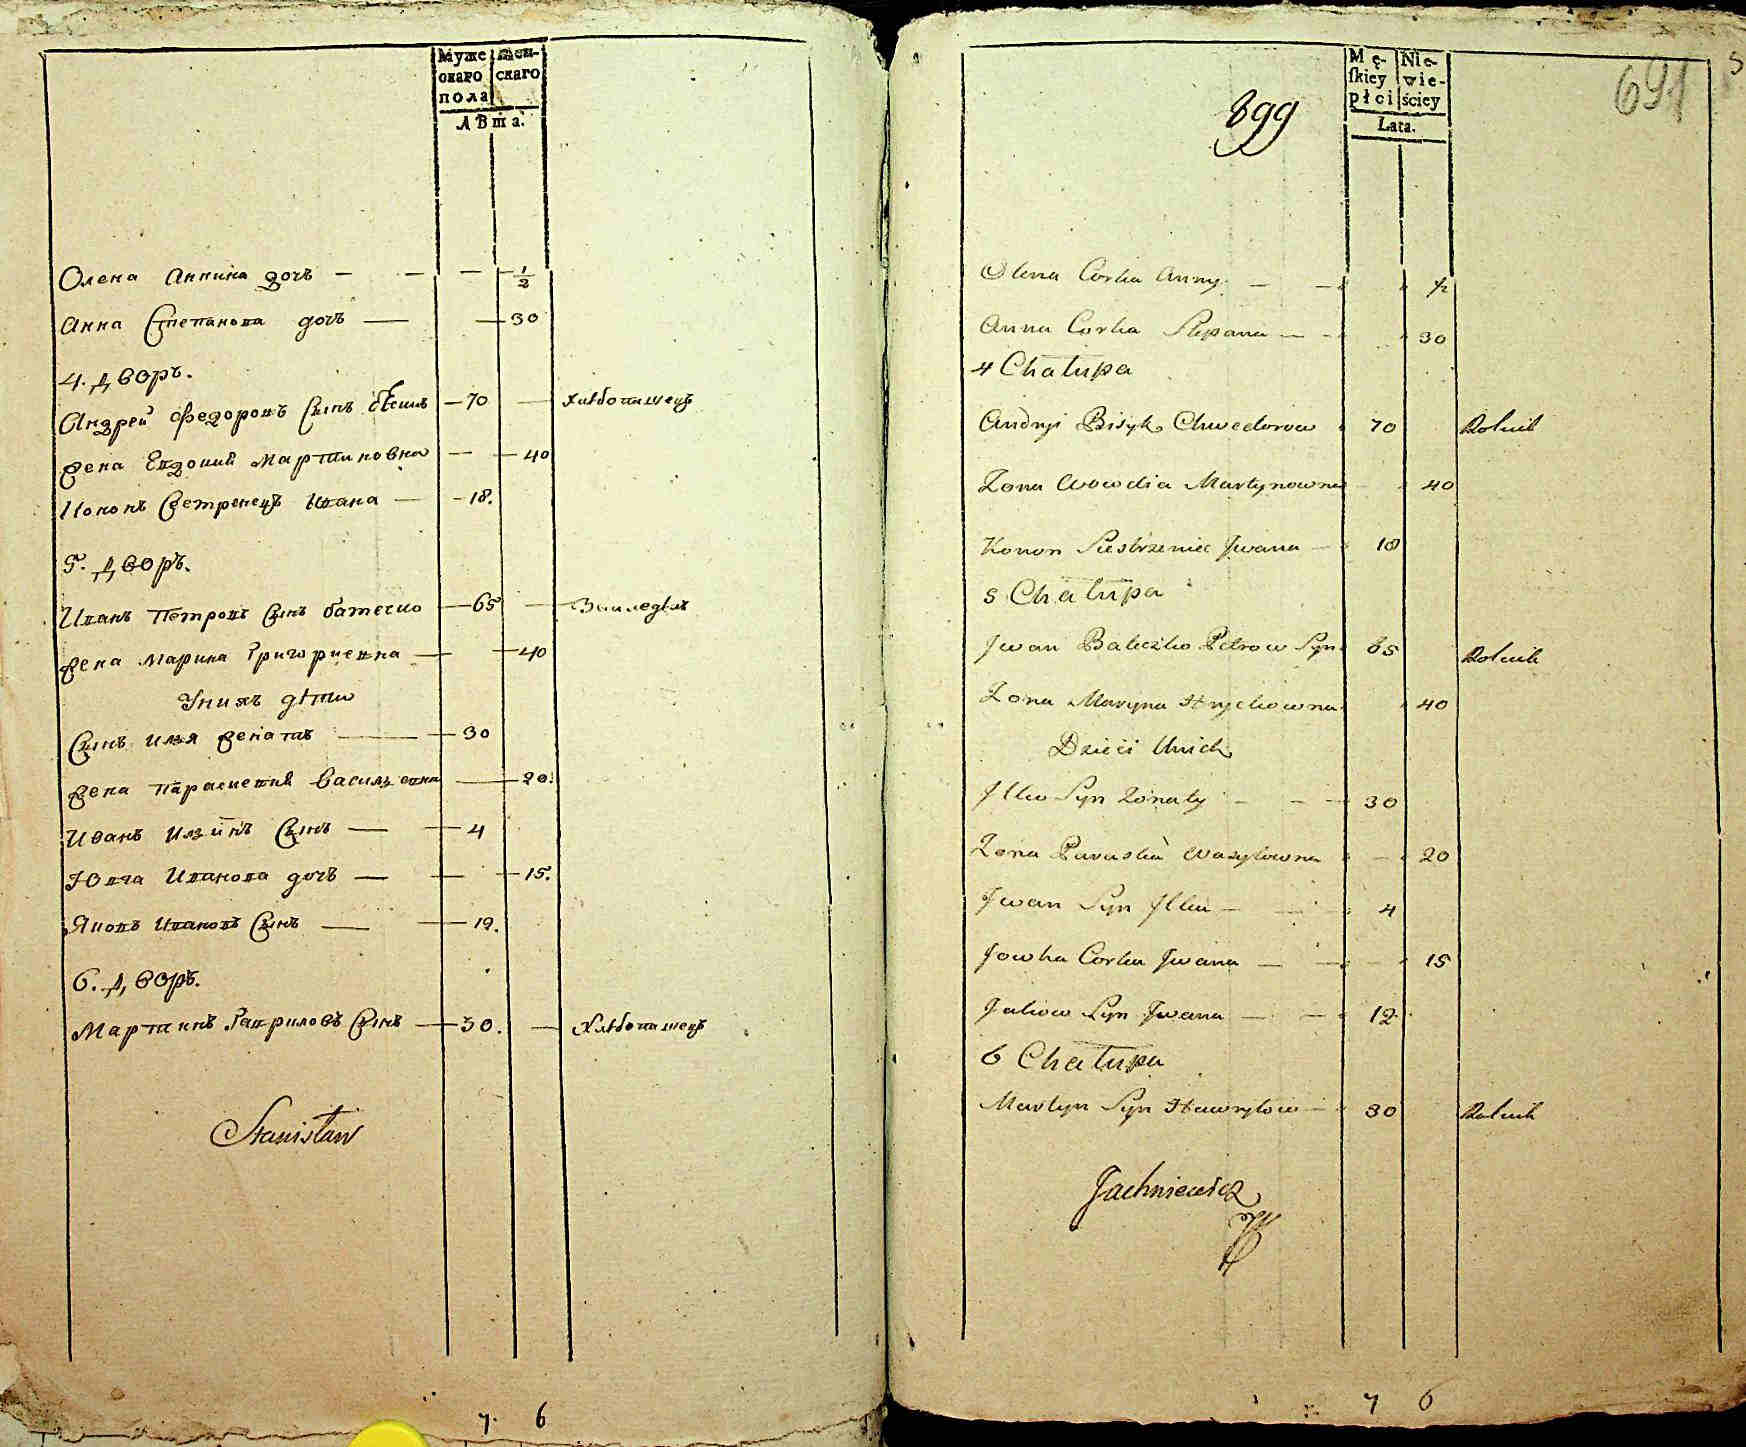 Муже Жен-
скаго скаго
пола
Лѣта.
Олена Аннина дочь — — — — 1/2
Анна Степанова дочь — — 30
4. дворъ.
Андрей Федоровъ Сынъ — 70 — хлѣбопашецъ
Жена Евдокия Мартиновна — — 40
Кононъ Сестренецъ Ивана — — 18.
5. дворъ.
Иванъ Петровъ Сынъ батечко — 65 —
жена Марина Григориевна — — 40
У нихъ дѣти
Сынъ Илья женатъ — — 30
жена Параскевия Васильевна — — 20.
Иванъ Ильинъ Сынъ — — 4
Ювга Иванова дочь — — — 15.
Яковъ Ивановъ Сынъ — — 12.
6. дворъ.
Мартинъ Гавриловъ Сынъ — 30. — Хлѣбопашецъ
Stanisław
7. 6
Mę- Nie-
ſkiey wie-
płci ściey
Lata.
899
691
Olena Corka Anny — — 1/2
Anna Corka Stepana — 30
4 Chałupa
Andryi Bisyk Chwedorow 70 Rolnik
Zona Wowdia Martynowna 40
Konon Siestrzeniec Jwana — 18
5 Chałupa
Jwan Bateczko Petrow Syn 65 Rolnik
Zona Maryna Hryckowna 40
Dzieci Unich
Jlko Syn Zonaty — — — 30
Zona Paraska Wasylowna — 20
Jwan Syn Jlka — — 4
Jowka Corka Jwana — — — 15
Jakow Syn Jwana — — 12
6 Chałupa
Martyn Syn Hawryłow — 30 Rolnik
Jachniewicz
7 6